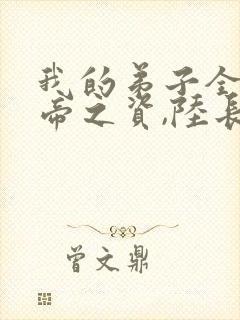 我的弟子全
帝之資,陸長
曾文鼎